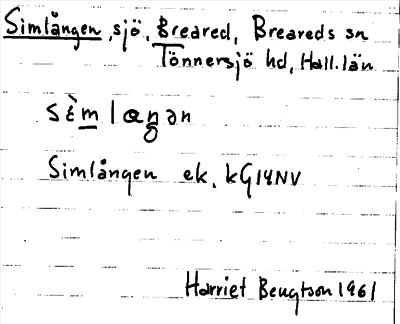 Simlången, sjö, Breared, Breareds sn
Tönnersjö hd, Hall. län
Simlången ek.
Harriet Bengtson 1961